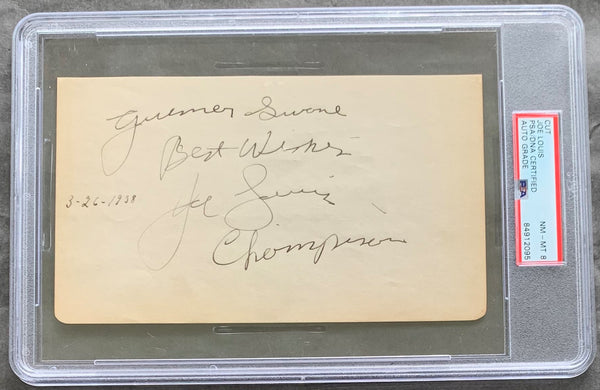 Gulmer Swone
Best Wishes
3-26-1938
Joe Louis
Chompison
CUT
JOE LOUIS
PSA/DNA CERTIFIED
AUTO GRADE
PSA
NM - MT 8
84912095